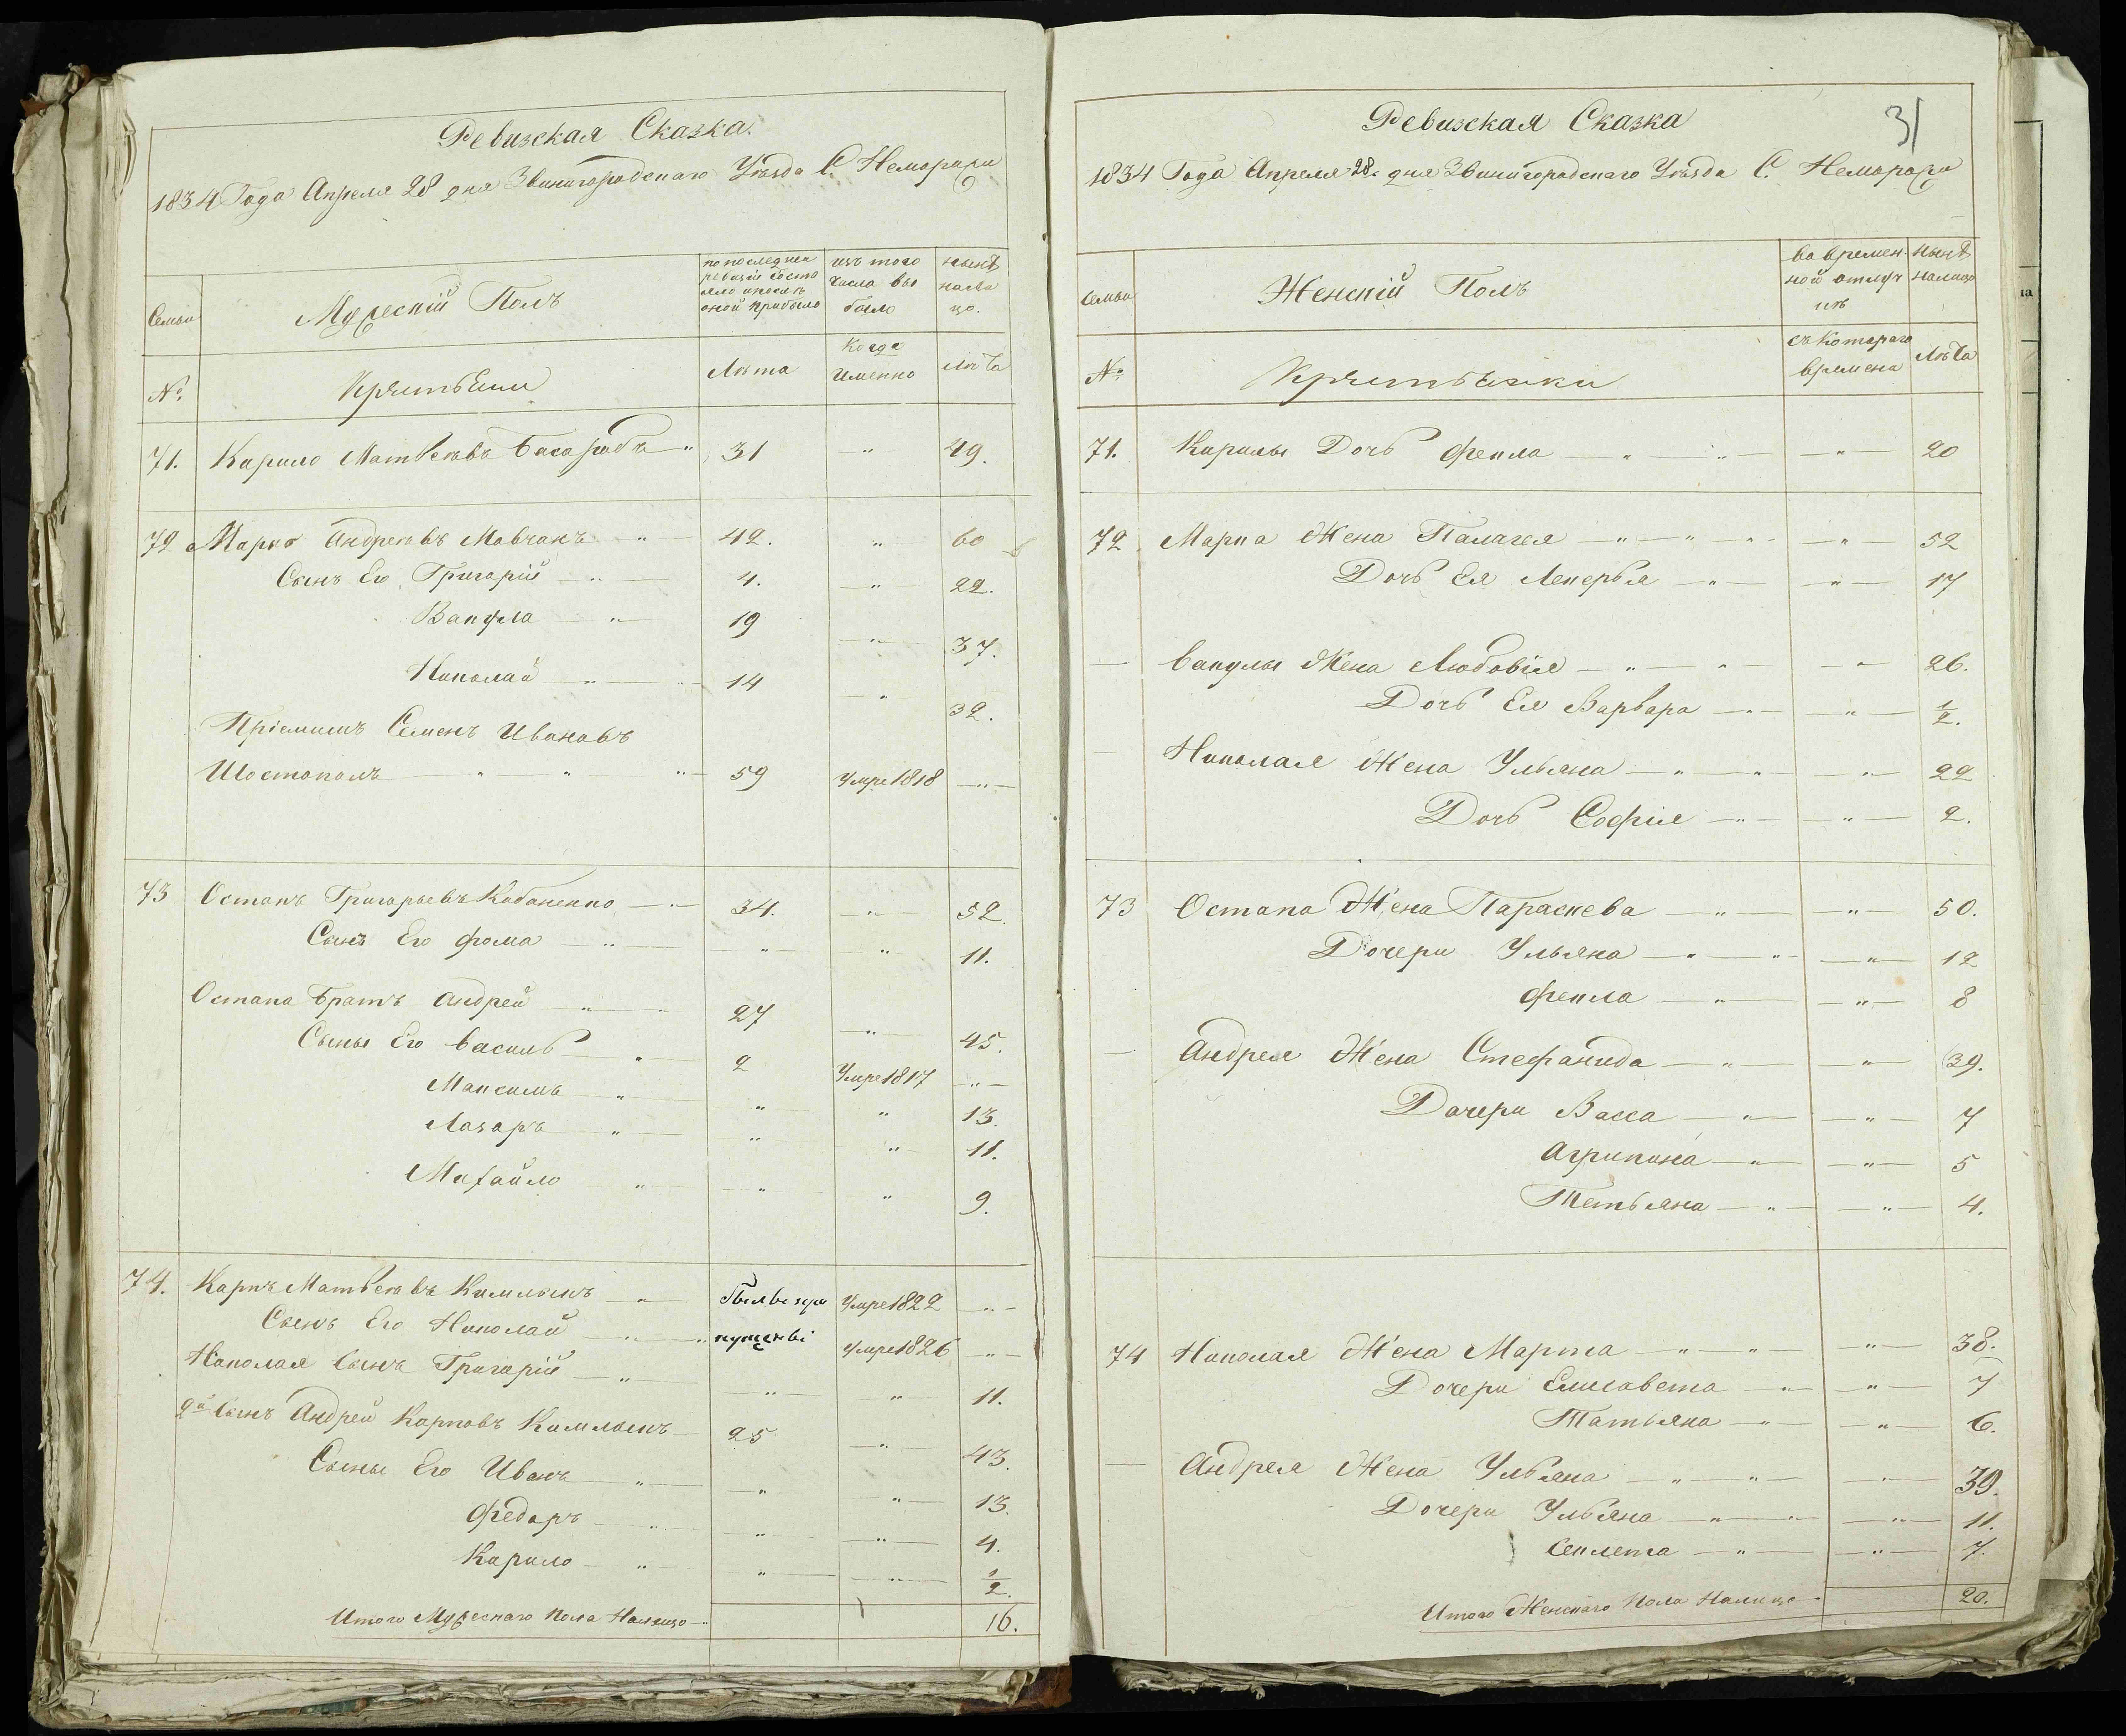 Ревизская Сказка.
1834 Года Апреля 28 дня Звинигородскаго Уѣзда С. Неморожи
Семьи
Мужескій Полъ
по последней ревизіи состояло и после оной прибыло
изъ того числа выбыло
нынѣ налицо.
№
Крѣстьяни
Лѣта
Когда Именно
Лѣта
71. Кирило Матвѣевъ Басарабъ " 31 " 49.
72 Марко Андреевъ Мовчанъ " 42. " 60
Сынъ Его Григорій " 4. " 22.
Вакула " 19 " 37.
Николай " 14 " 32.
Пріемишъ Семенъ Ивановъ
Шостополъ " " " 59 Умре 1818 "
73 Остапъ Григорьевъ Кобаненко " 34. " 52.
Сынъ Его Фома " " " 11.
Остапа Братъ Андрей " 27 " 45.
Сыны Его Василь " 2 Умре 1817 "
Максимъ " " " 13.
Лазаръ " " " 11.
Михайло " " " 9.
74. Карпъ Матвѣевъ Умре 1822 "
Сынъ Его Николай " Умре 1826 "
Николая Сынъ Григорій " " " 11.
2й Сынъ Андрей Карповъ 25 " 43.
Сыны Его Иванъ " " " 13.
Федоръ " " " 4.
Кирило " " " 1/2.
Итого Мужескаго Пола Налицо 16.
31
Ревизская Сказка
1834 Года Апреля 28. дня Звинигородскаго Уѣзда С. Неморожи
Семьи
Женскій Полъ
во временной отлучкѣ
нынѣ налицо
№
Крѣстьянки
съ Котораго времени
Лѣта
71. Кирилы Дочь Фекла " " " 20
72 Марка Жена Палагея " " " " 52
Дочь Ея Лекерья " " 17
Вакулы Жена Любовія " " " 26.
Дочь Ея Варвара " " 1/2.
Николая Жена Ульяна " " " 22
Дочь Софія " " 2.
73 Остапа Жена Параскева " " 50.
Дочери Ульяна " " " 12
Фекла " " 8
Андрея Жена Стефанида " " 39.
Дочери Васса " " 7
Агрипина " " 5
Тетьяна " " 4.
74 Николая Жена Марта " " " 38.
Дочери Елисавета " " 7
Татьяна " " 6.
Андрея Жена Ульяна " " " 39.
Дочери Ульяна " " " 11.
Секлета " " 7.
Итого Женскаго Пола Налицо 20.